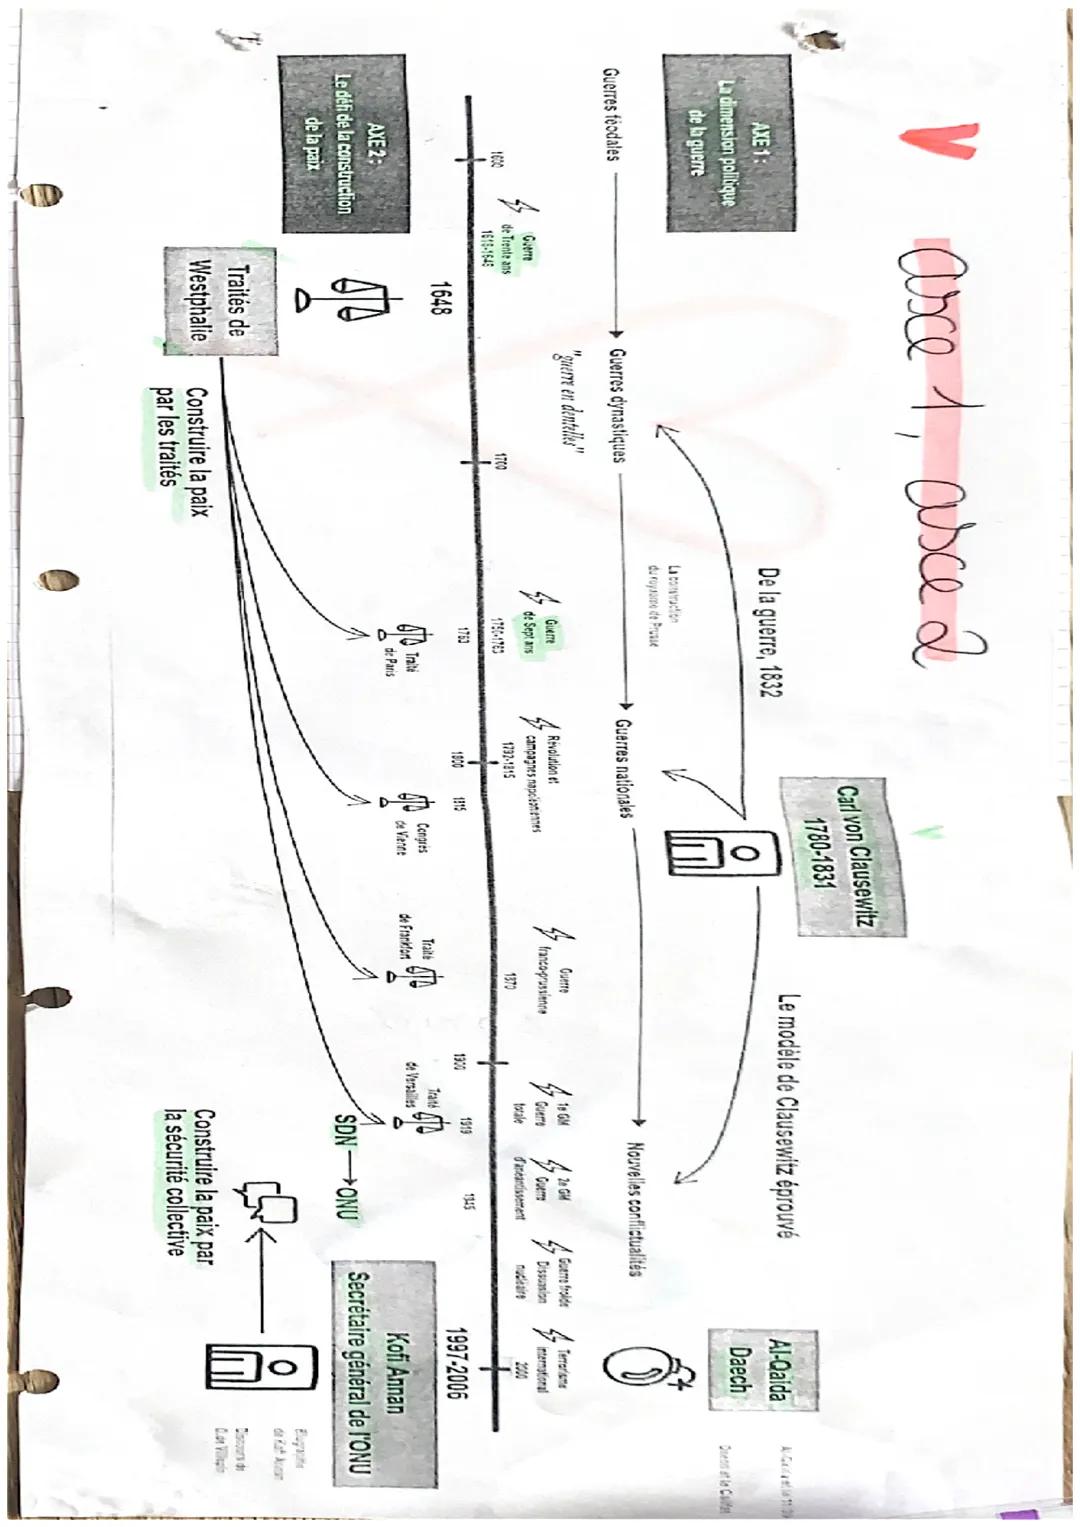 axe 1, axe 2
AXE 1 :
La dimension politique
de la guerre
De la guerre, 1832
Carl von Clausewitz
1780-1831
Le modèle de Clausewitz éprouvé
Al-Qaida
Daech
La construction
du royaume de Prusse
Guerres féodales
Guerres dynastiques
"guerre en dentelles"
Guerres nationales
Nouvelles conflictualités
Guerre
de Trente ans
1618-1648
Guerre
de Sept ans
1756-1763
Révolution et
campagnes napoléoniennes
1792-1815
Guerre
franco-prussienne
1870
1e GM
Guerre
totale
2e GM
Guerre
d'anéantissement
Guerre froide
Dissuasion
nucléaire
Terrorisme
international
1600
1700
1800
1900
2000
1648
1763
1815
1919
1945
1997-2006
AXE 2 :
Le défi de la construction
de la paix
Traité
de Paris
Congrès
de Vienne
Traité
de Francfort
Traité
de Versailles
SDN → ONU
Kofi Annan
Secrétaire général de l'ONU
Traités de
Westphalie
Construire la paix
par les traités
Construire la paix par
la sécurité collective
Biographie
de Kofi Annan
Discours de
D. de Villepin